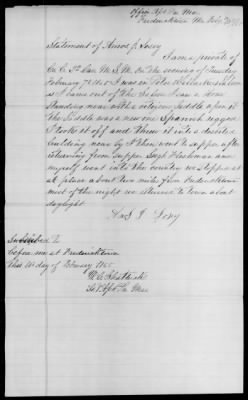 Office
Fredericktown Mo Feby
Statement of Amos J. Sorry
I am a private of
Co C 3d Cav M.S.M. On the evening of Tuesday
February 7th 1865 I was in Peter saloon
as I came out of the Saloon I saw a Horse
Standing near with a citizens Saddle upon it
The Saddle was a new one Spanish rigged
I took it off and threw it into a deserted
building near by I then went to supper after
returning from supper Sergt and
myself went into the country we stopped at
a place about two miles from Fredericktown
most of the night we returned to town about
daylight
Amos J
Subscribed to
before me at Fredericktown
this 10 day of February 1865